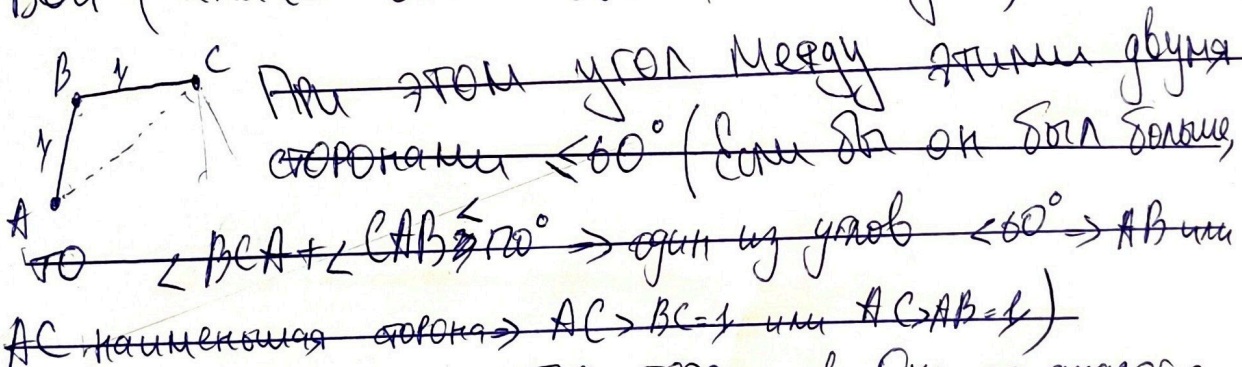 B y C
При этом угол между этими двумя
y
сторонами <60° (Если бы он был больше,
A
то ∠BCA+∠CAB≤120° ⇒ один из углов <60° ⇒ AB или
AC наименьшая сторона ⇒ AC>BC=1 или AC>AB=1)